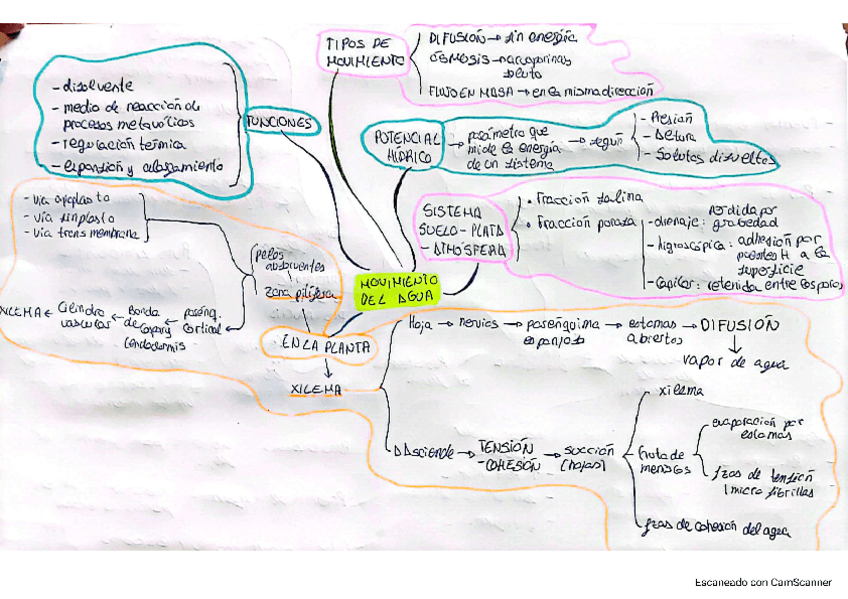 TIPOS DE
MOVIMIENTO
DIFUSIÓN → sin energía
ÓSMOSIS → acuaporinas
soluto
FLUJO EN MASA → en la misma dirección
FUNCIONES
- disolvente
- medio de reacción de
procesos metabólicos
- regulación térmica
- expansión y alargamiento
POTENCIAL
HÍDRICO
→ parámetro que
mide la energía
de un sistema
→ según
- Presión
- Altura
- Solutos disueltos
SISTEMA
SUELO - PLATA
- ATMÓSFERA
• Fracción
• Fracción porosa
- drenaje: perdida por
gravedad
- higroscópica: adhesión por
puentes H a la
superficie
- Capilar: retenida entre los poros
MOVIMIENTO
DEL AGUA
EN LA PLANTA
pelos
absorbentes
zona pilífera
- vía apoplasto
- vía simplasto
- vía transmembrana
parénq.
cortical
Banda
de
Caspary
Cendodermis
Cilindro
vascular
XILEMA
XILEMA
Hoja → nervios → parénquima
esponjoso
→ estomas
abiertos
→ DIFUSIÓN
vapor de agua
Asciende → TENSIÓN
- COHESIÓN
→ succión
(hojas)
xilema
evaporación por
estomas
fzas de tensión
microfibrillas
fzas de cohesión del agua
Escaneado con CamScanner